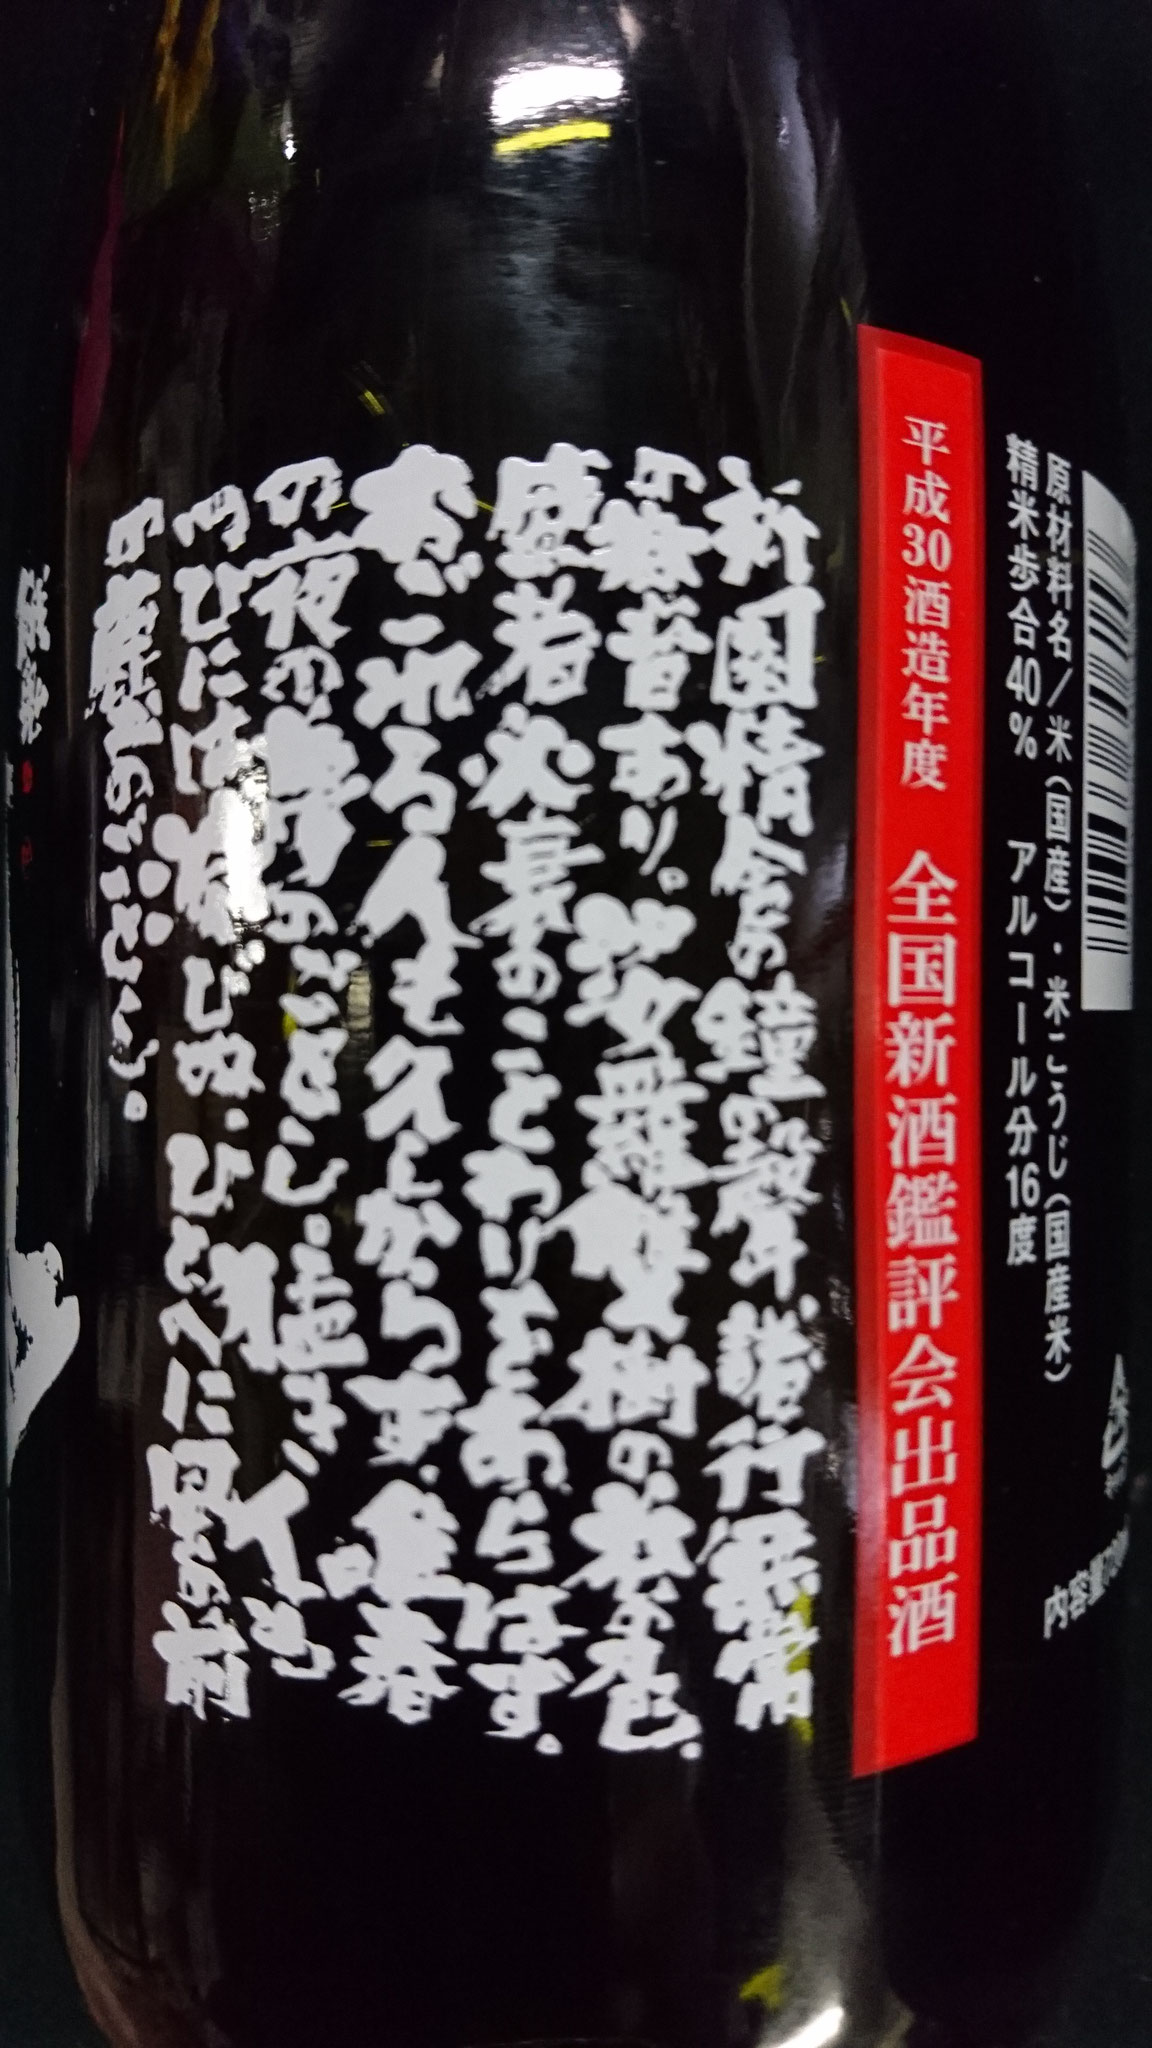 原材料名／米（国産）・米こうじ（国産米）
精米歩合40％　アルコール分16度
内容量
平成30酒造年度　全国新酒鑑評会出品酒
祇園精舎の鐘の聲、諸行無常
の響あり。娑羅雙樹の花の色、
盛者必衰のことわりをあらはす。
おごれる人も久しからず、唯春
の夜の夢のごとし。猛き人もつ
ひには滅びぬ、ひとへに風の前
の塵のごとし。